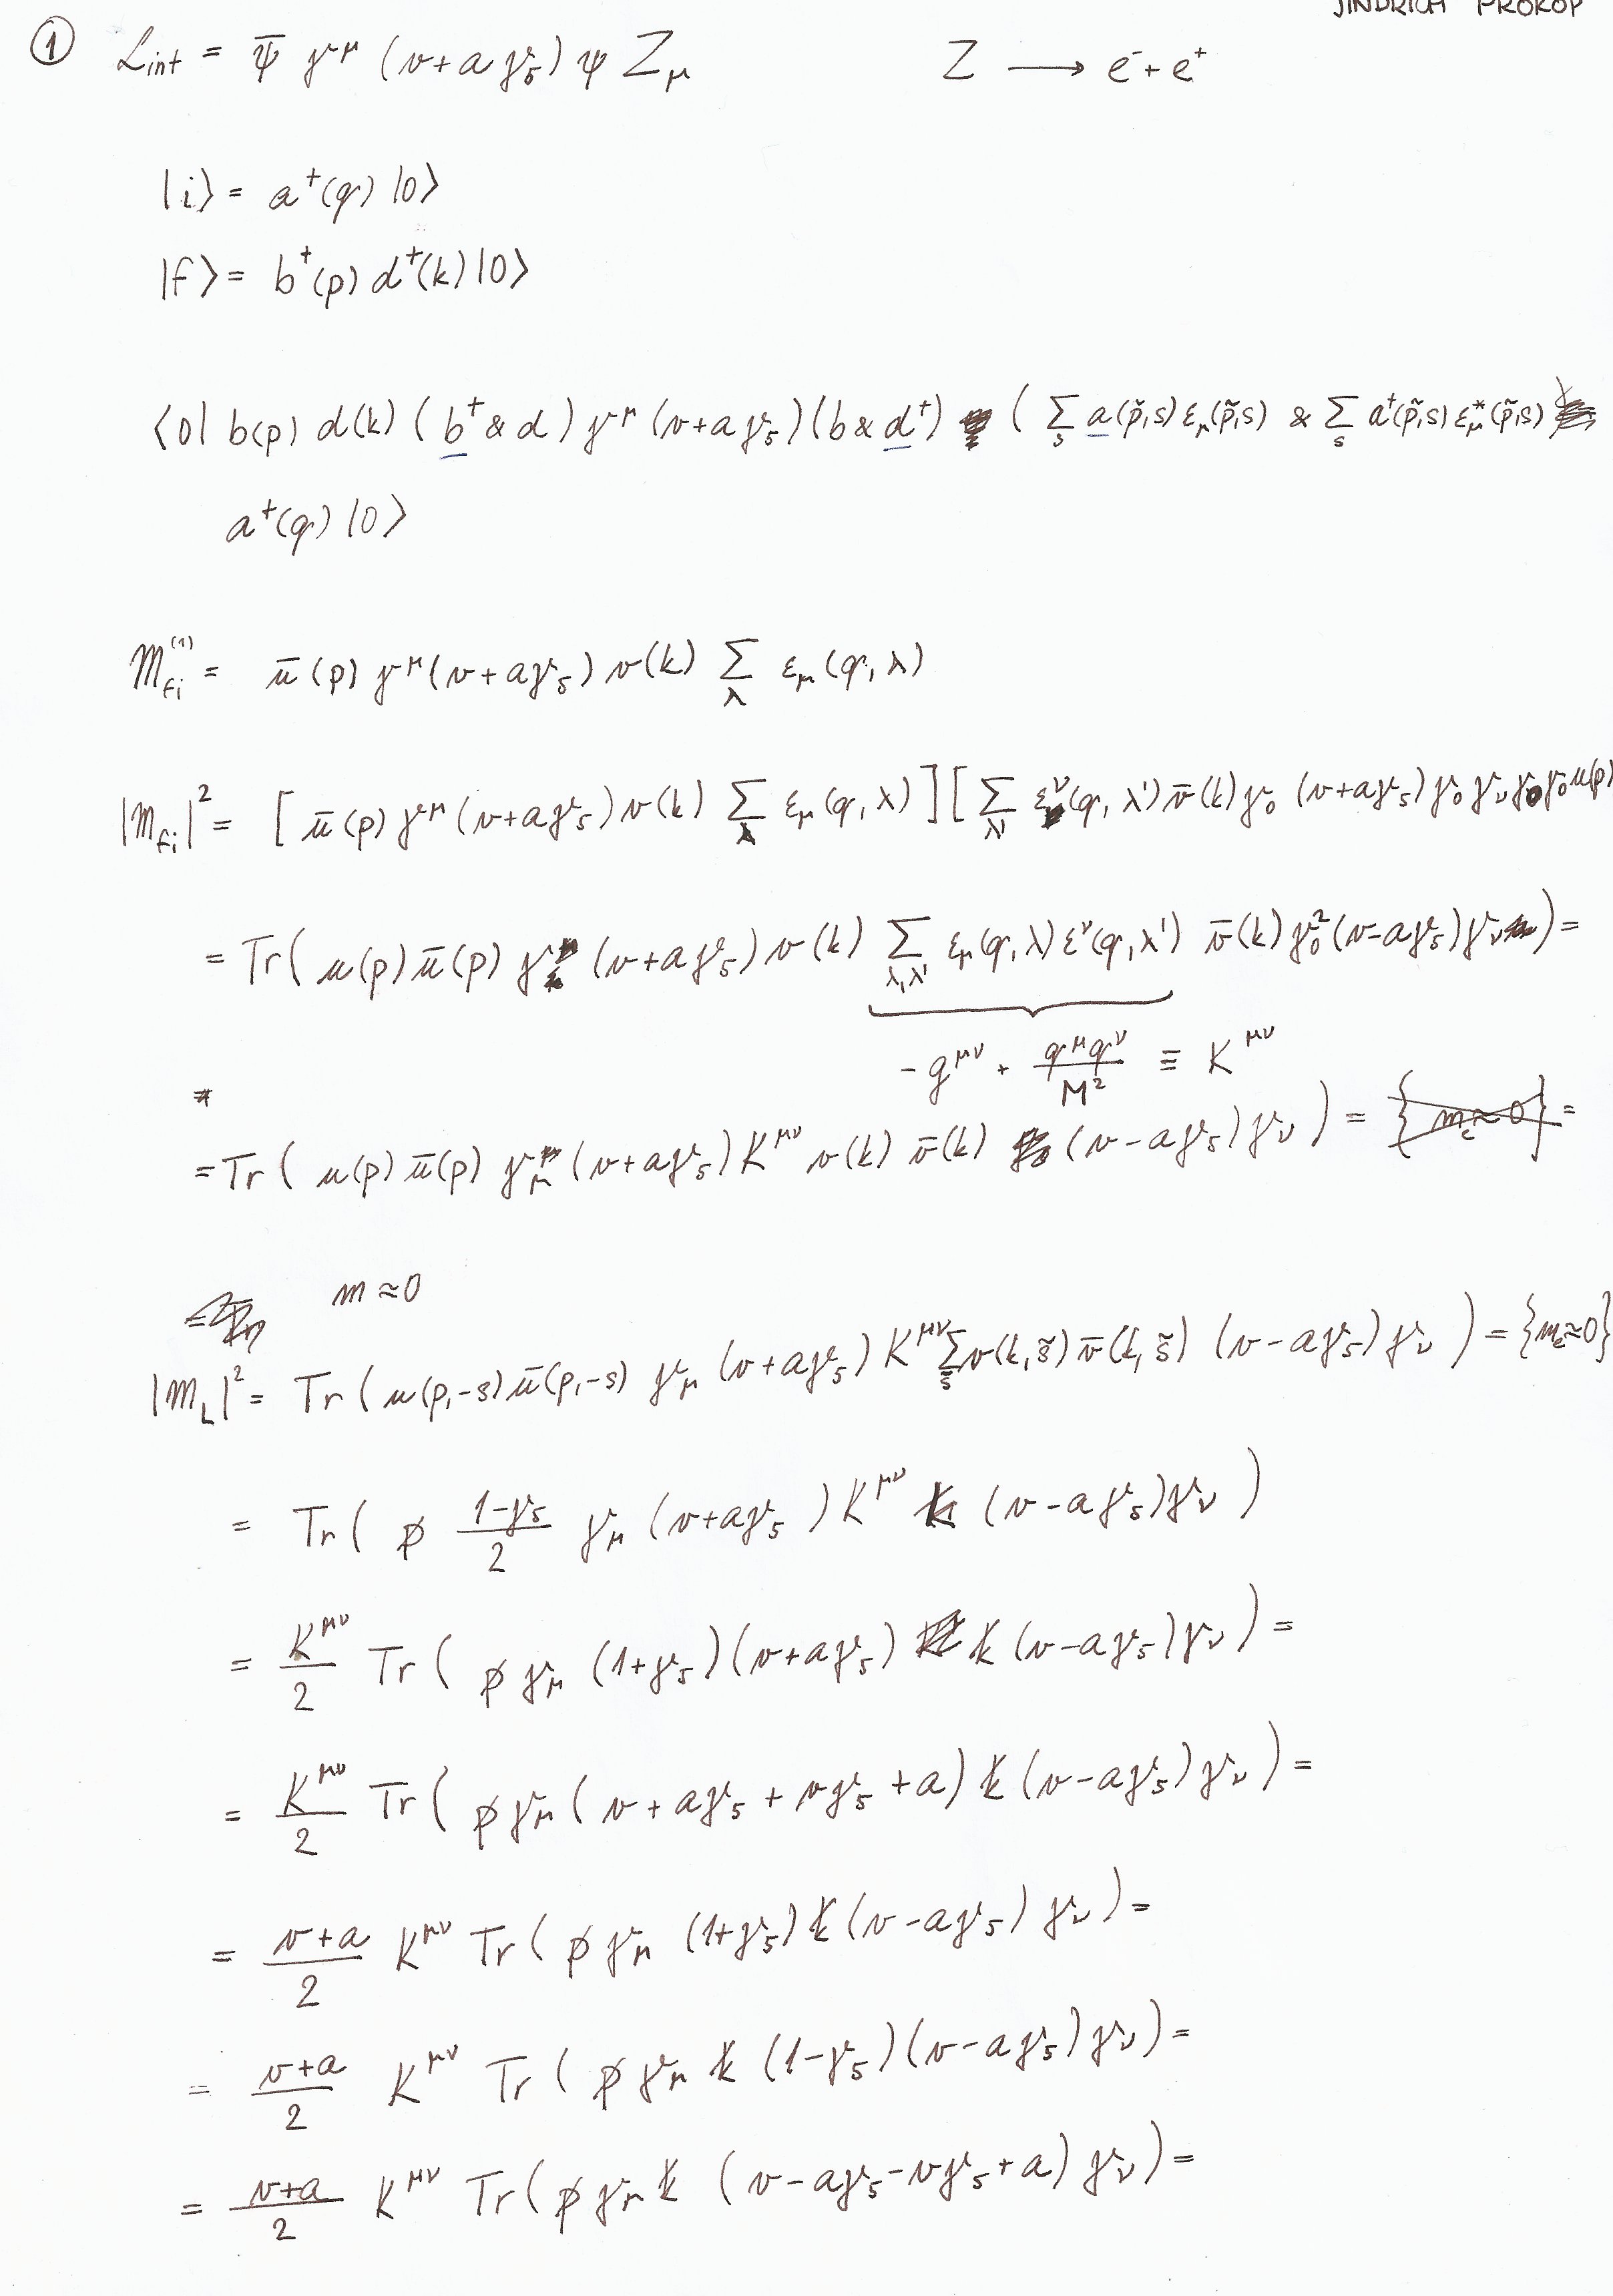 JINDRICH PROKOP
① 𝓛int = ψ̄ γ^μ (v + a γ5) ψ Z_μ Z ⟶ e⁻ + e⁺
|i⟩ = a⁺(q) |0⟩
|f⟩ = b⁺(p) d⁺(k) |0⟩
⟨0| b(p) d(k) (b⁺ & d) γ^μ (v + aγ5)(b & d⁺) ( Σ_s a(p̃,s) ε_μ(p̃,s) & Σ_s a⁺(p̃,s) ε*_μ(p̃,s)
a⁺(q) |0⟩
M_fi^(1) = ū(p) γ^μ (v + aγ5) v(k) Σ_λ ε_μ(q, λ)
|M_fi|² = [ ū(p) γ^μ (v + aγ5) v(k) Σ_λ ε_μ(q, λ) ] [ Σ_λ' ε^ν(q, λ') v̄(k) γ0 (v + aγ5) γ0 γ_ν γ0 γ0 u(p)
= Tr( u(p) ū(p) γ (v + aγ5) v(k) Σ_λ,λ' ε_μ(q, λ) ε^ν(q, λ') v̄(k) γ0² (v - aγ5) γ_ν ) =
- g^μν + q^μ q^ν / M² ≡ K^μν
= Tr( u(p) ū(p) γ_μ (v + aγ5) K^μν v(k) v̄(k) (v - aγ5) γ_ν ) = { m_e ≈ 0 } =
m ≈ 0
|M_L|² = Tr( u(p,-s) ū(p,-s) γ_μ (v + aγ5) K^μν Σ_s̃ v(k, s̃) v̄(k, s̃) (v - aγ5) γ_ν ) = { m_e ≈ 0 }
= Tr( p̸ (1-γ5)/2 γ_μ (v + aγ5) K^μν k̸ (v - aγ5) γ_ν )
= K^μν/2 Tr( p̸ γ_μ (1+γ5)(v + aγ5) k̸ (v - aγ5) γ_ν ) =
= K^μν/2 Tr( p̸ γ_μ (v + aγ5 + vγ5 + a) k̸ (v - aγ5) γ_ν ) =
= (v+a)/2 K^μν Tr( p̸ γ_μ (1+γ5) k̸ (v - aγ5) γ_ν ) =
= (v+a)/2 K^μν Tr( p̸ γ_μ k̸ (1-γ5)(v - aγ5) γ_ν ) =
= (v+a)/2 K^μν Tr( p̸ γ_μ k̸ (v - aγ5 - vγ5 + a) γ_ν ) =